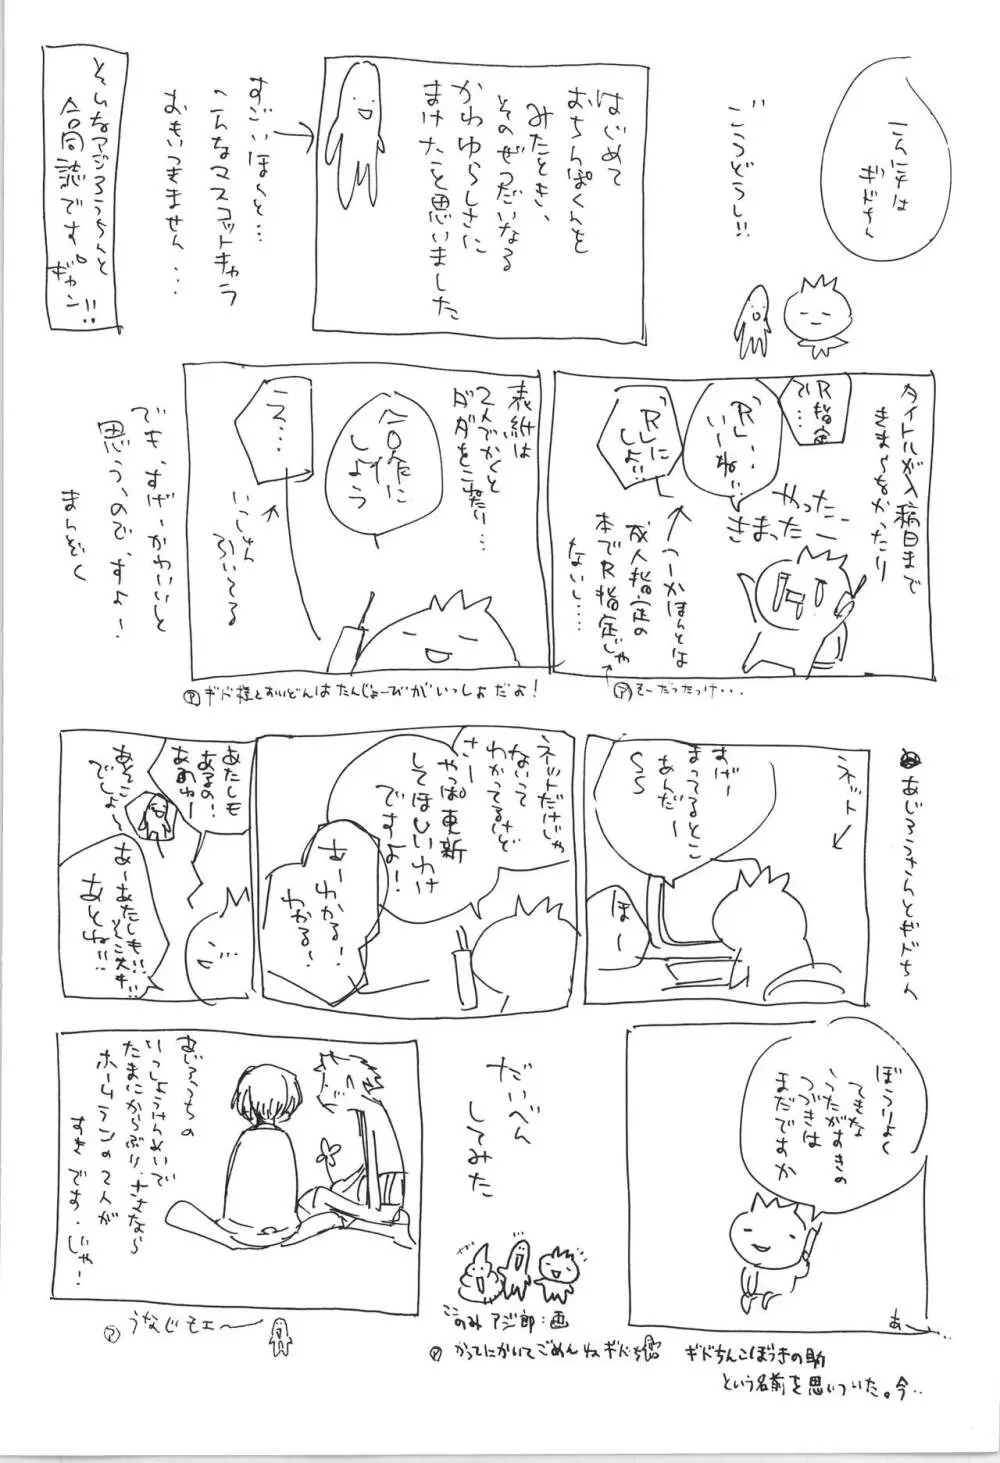 こんにちは
ギドちん
ごうどうし!!
はじめて
おちんぽくんを
みたとき、
そのぜつだいなる
かわゆらしさに
まけたと思いました
すごいほんと…
こんなマスコットキャラ
おもいつきません…
そんなアジろうちんと
合同誌です。ギャン!!
タイトルが入稿日まで
きまらなかったり
R指定
で…
「R」…
いーね…
「R」に
しよ…
やったー
きまったー
つーかほんとは
成人指定の
本でR指定じゃ
ないし…
そーだったっけ…
表紙は
2人でかくと
ダダをこねたり…
合作に
しよう
え…
いっしゅん
ひいてる
でも、すげーかわいいと
思う、ので、すよ!
まんぞく
ギド様とすいどんはたんじょーびがいっしょだよ!
あじろうさんとギドちん
ネット
すげー
まってるとこ
あんだー
ほー
ネットだけじゃ
ないって
わかってるけど
さー
やっぱ更新
してほしいわけ
ですよ!
あーわかる!
わかる!
あたしも
あるの!
あれねー
あそこ
でしょー
あーあたしも!!
そこ大キ!!
あとね!!
ぼうりょく
てきな
うたがすきの
つづきは
まだですか
あ〜
だいべん
してみた
このみアジ郎:画
あじろうちの
いっしょうけんめいで
たまにからぶり、ナナなら
ホームランの2人が
すきです。いゃ!
うなじモエ〜
かってにかいてごめんねギドちん
ギドちんこぼうきの助
という名前を思いついた。今..